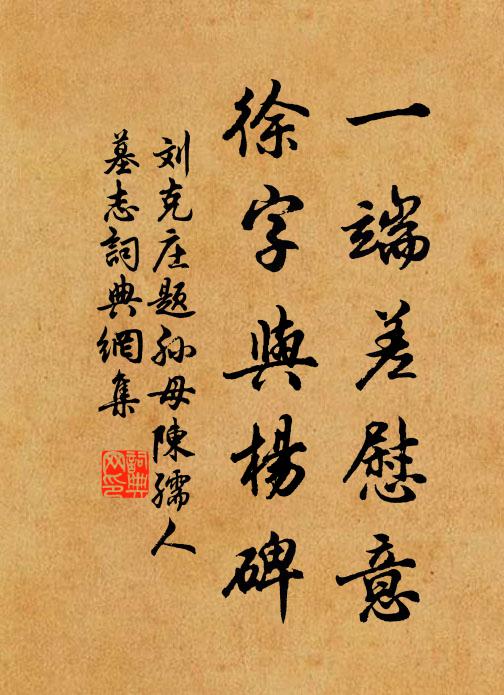 一端差慰意
徐字與楊碑
刘克庄题孙母陳孺人
墓志詞典網集
詞典网印